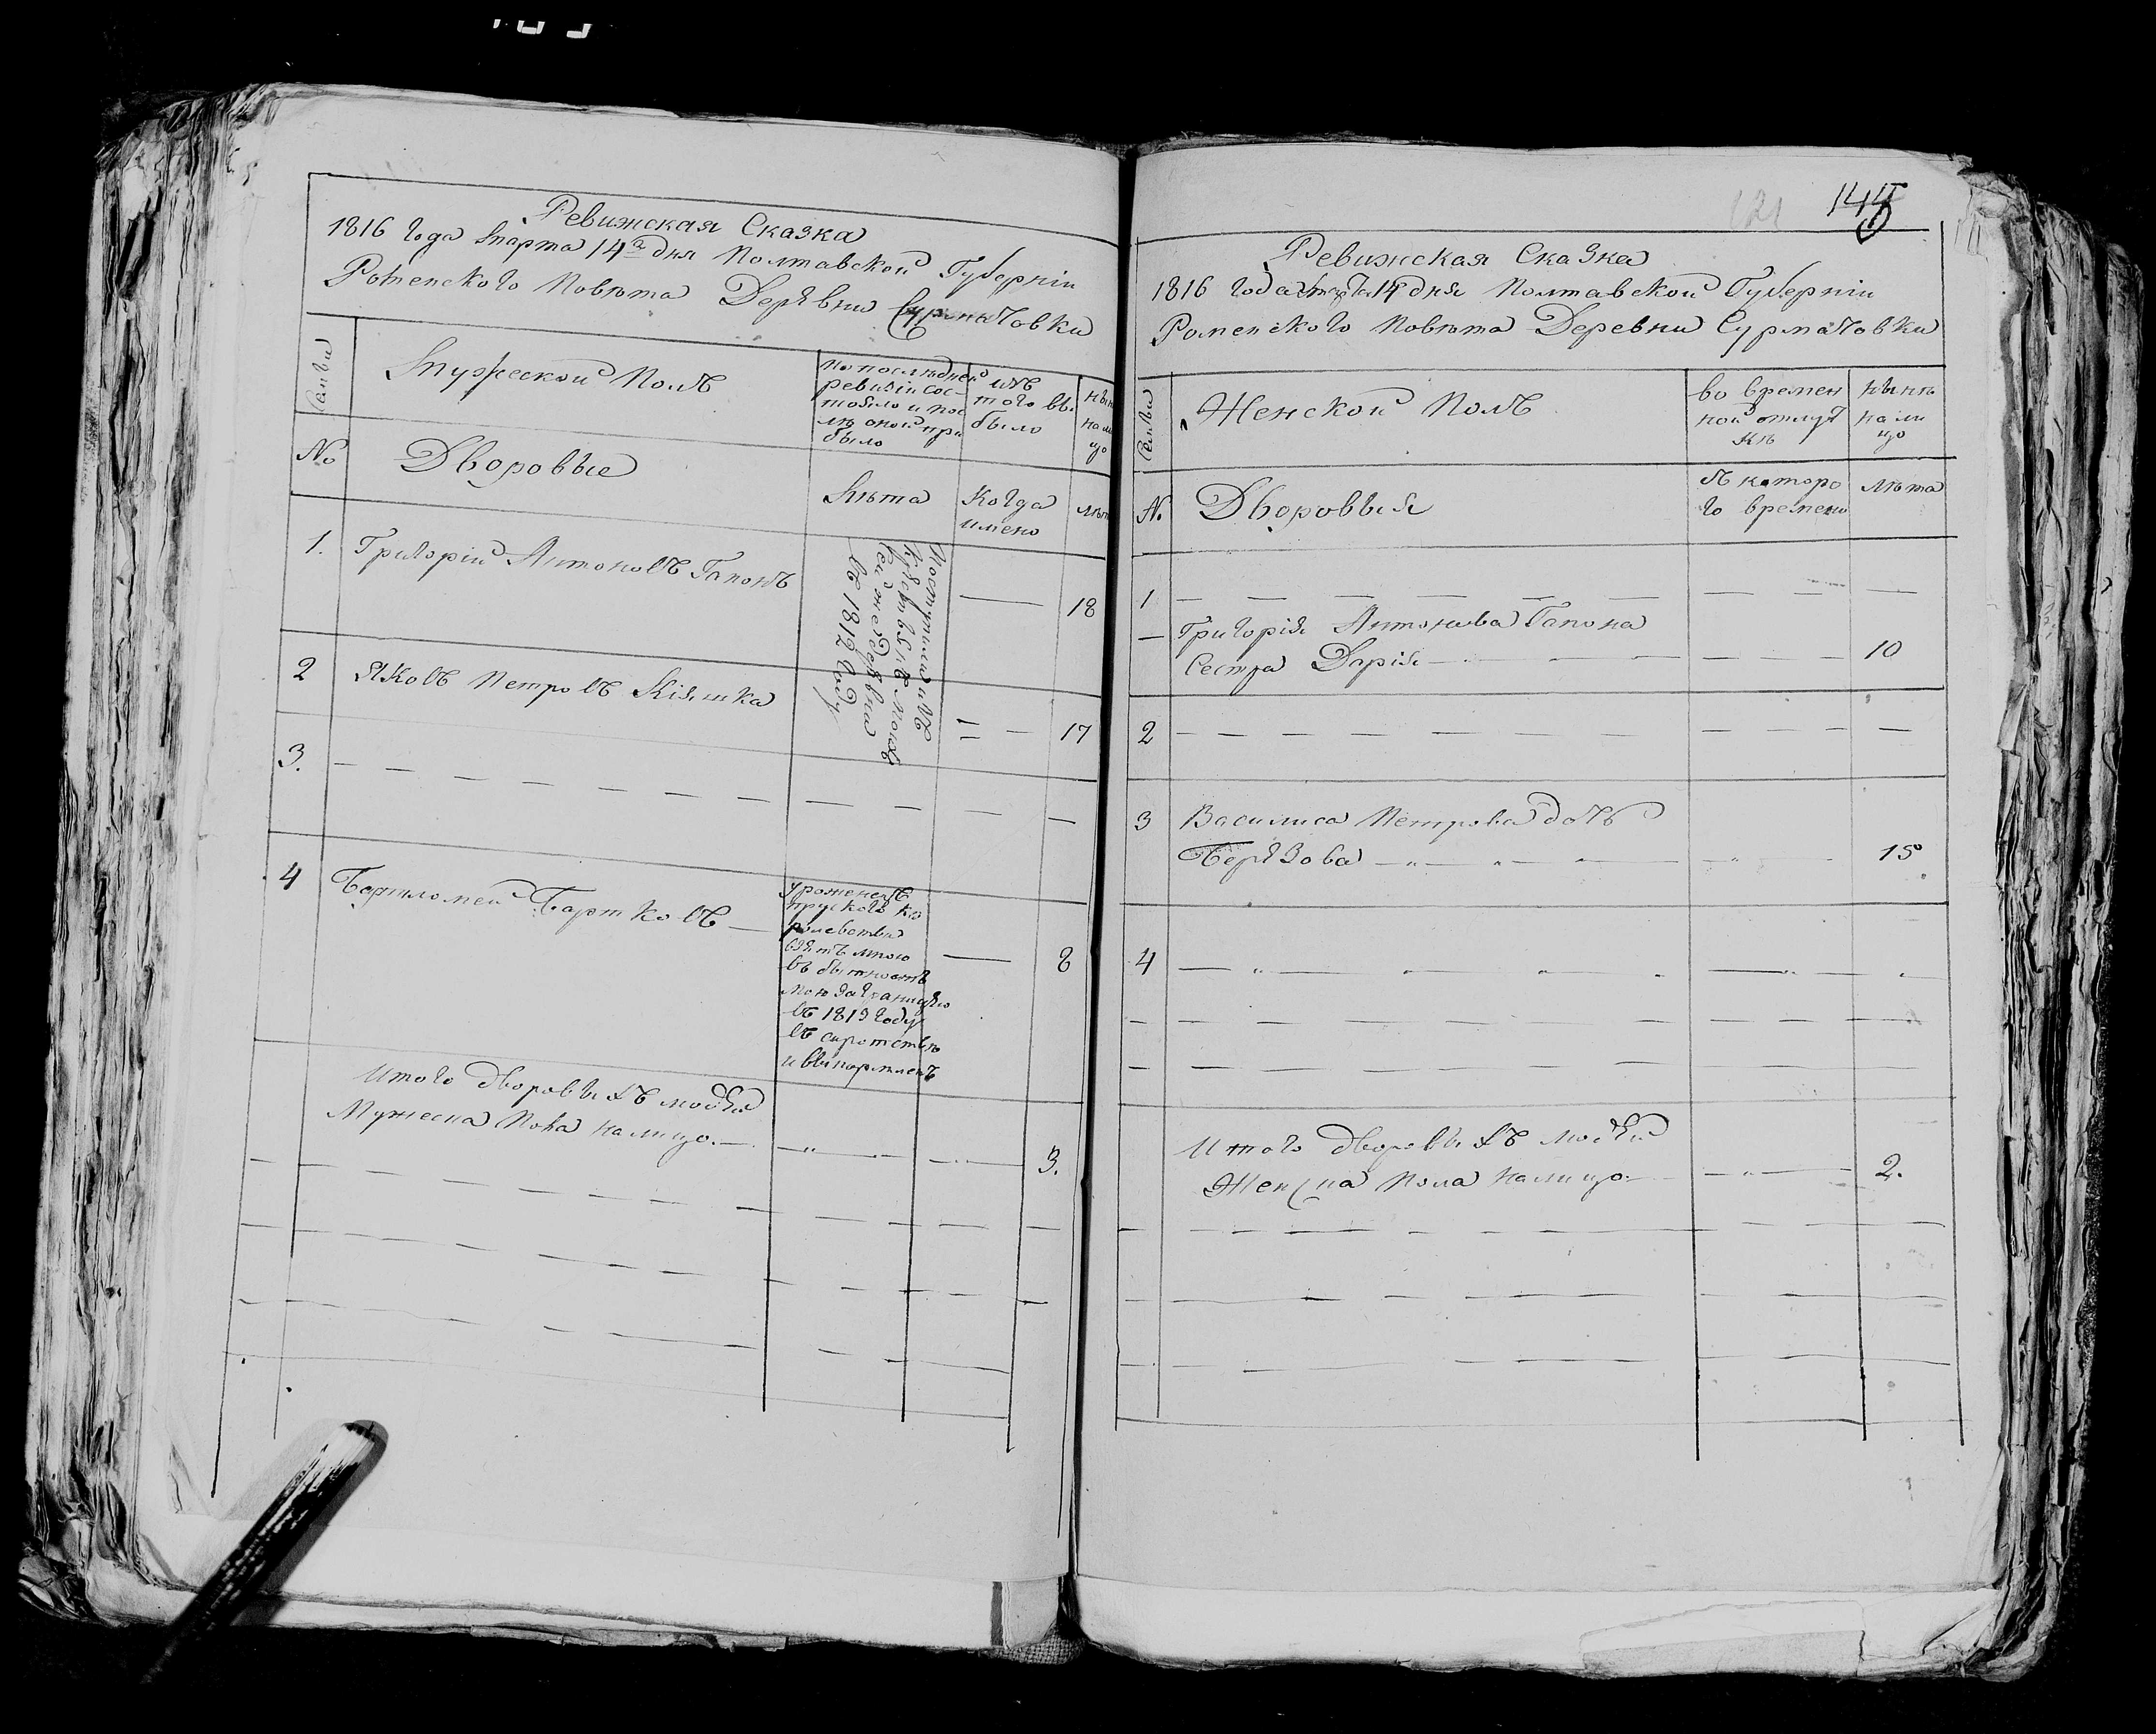 Ревижская Сказка
1816 года Марта 14го дня Полтавской Губерніи
Роменского Повѣта Деревни Сурмачовки
Семьи
Мужеской Полъ
По последней
ревизіи сос-
тояло и пос
лѣ оной при
было
изъ
того вы
было
нын
нали
цо
№
Дворовые
Лѣта
Когда
имено
лѣт
1. Григорій Антоновъ Гапонъ
18
2 Яковъ Петровъ Кіяшка
17
Поступили изъ
крестьянъ моихъ
сей же деревни
въ 1812 году
3.
4 Бартломей Бартковъ
уроженецъ
пруского ко
ролевства
взятъ мною
въ бытность
мою заграницею
въ 1813 году
въ сиротстве
и выкормленъ
8
Итого дворовыхъ людей
Мужеска Пола налицо.
3.
121 144
Ревижская Сказка
1816 года Марта 14 дня Полтавской Губерніи
Роменского Повѣта Деревни Сурмачовки
Семьи
Женской Полъ
во времен
ной отлуч
кѣ
нынѣ
нали
цо
№.
Дворовыя
съ которо
го времени
лѣта
1
Григорія Антонова Гапона
Сестра Дарія
10
2
3 Василиса Петрова дочъ
Березова
15
4
Итого дворовыхъ людей
Женска пола налицо
2.